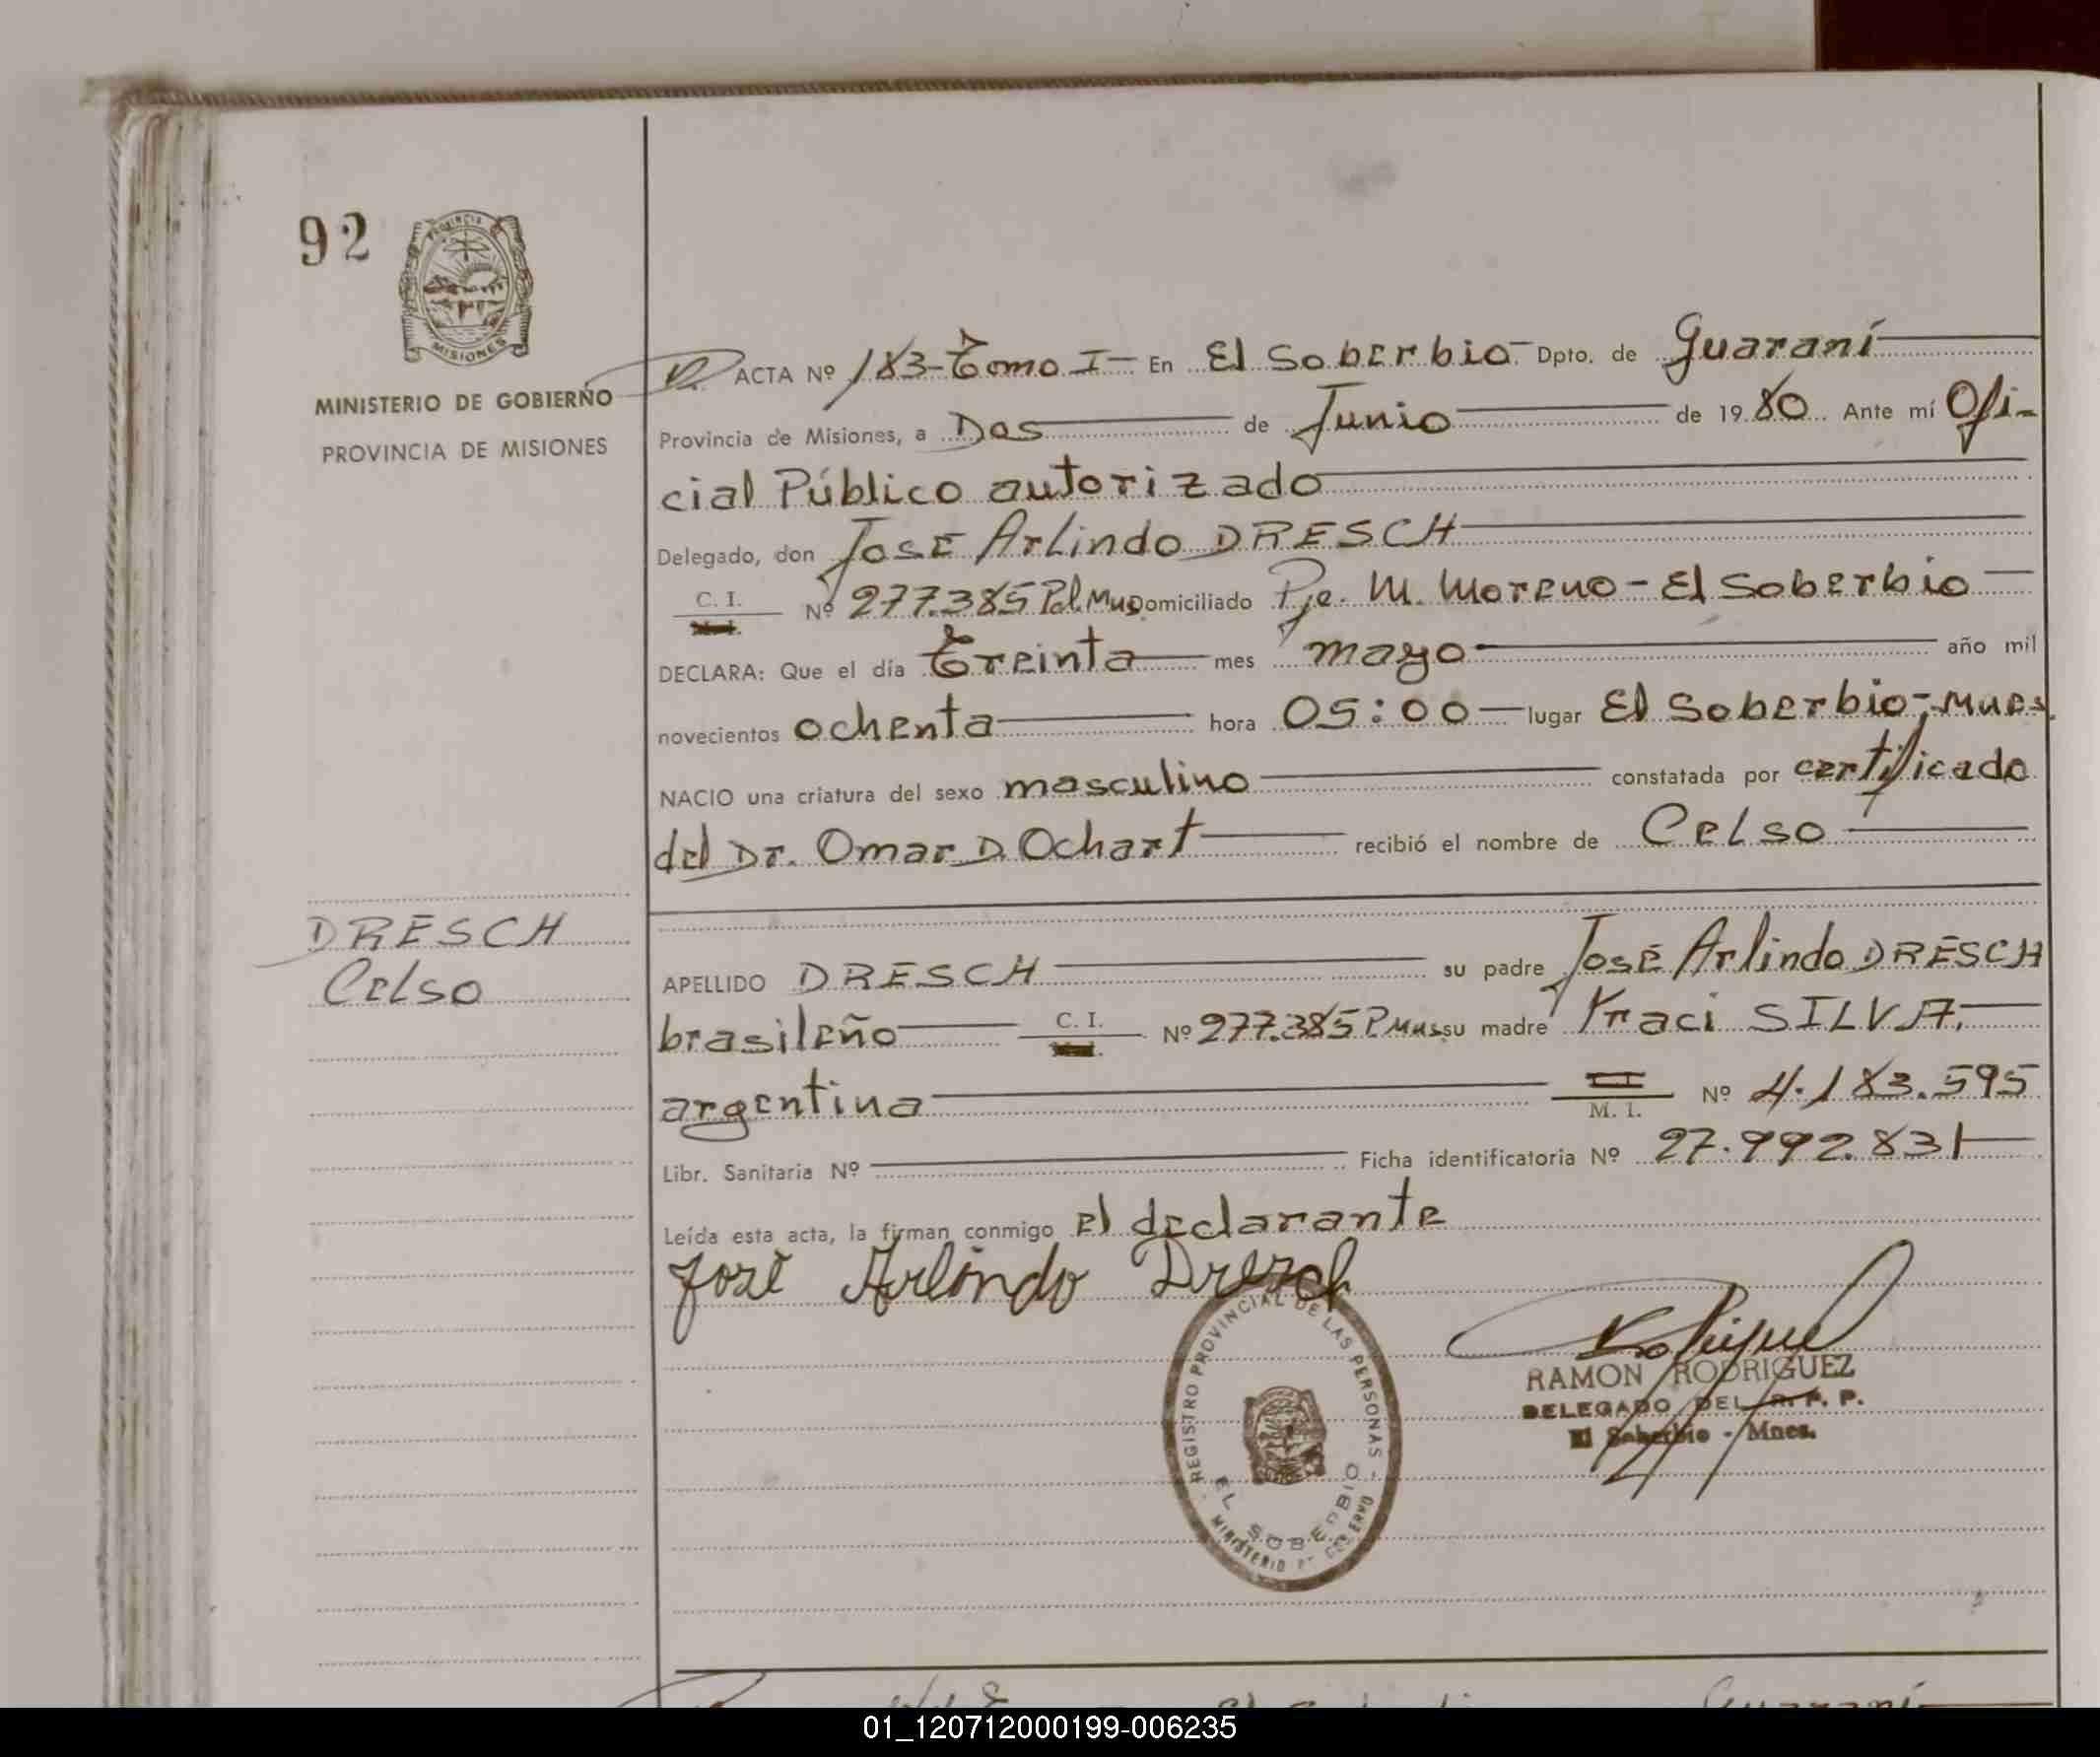 92
PROVINCIA
MISIONES
MINISTERIO DE GOBIERNO
PROVINCIA DE MISIONES
ACTA Nº 183-Tomo I- En El Soberbio- Dpto. de Guaraní
Provincia de Misiones, a Dos de Junio de 1980 Ante mí Ofi-
cial Público autorizado
Delegado, don José Arlindo DRESCH
C. I. Nº 277.385 Pol. Mns Domiciliado Pje. M. Moreno - El Soberbio
DECLARA: Que el día Treinta mes mayo año mil
novecientos ochenta hora 05:00 lugar El Soberbio, Mnes.
NACIO una criatura del sexo masculino constatada por certificado
del Dr. Omar D. Ochart recibió el nombre de Celso
DRESCH
Celso
APELLIDO DRESCH su padre José Arlindo DRESCH
brasileño C. I. Nº 277.385 P. Mns su madre Yraci SILVA,
argentina M. I. Nº 4.183.595
Libr. Sanitaria Nº Ficha identificatoria Nº 27.992.831
Leída esta acta, la firman conmigo el declarante
José Arlindo Dresch
REGISTRO PROVINCIAL DE LAS PERSONAS
EL SOBERBIO
MINISTERIO DE GOBIERNO
RAMON RODRIGUEZ
DELEGADO DEL R. P. P.
El Soberbio - Mnes.
01_120712000199-006235